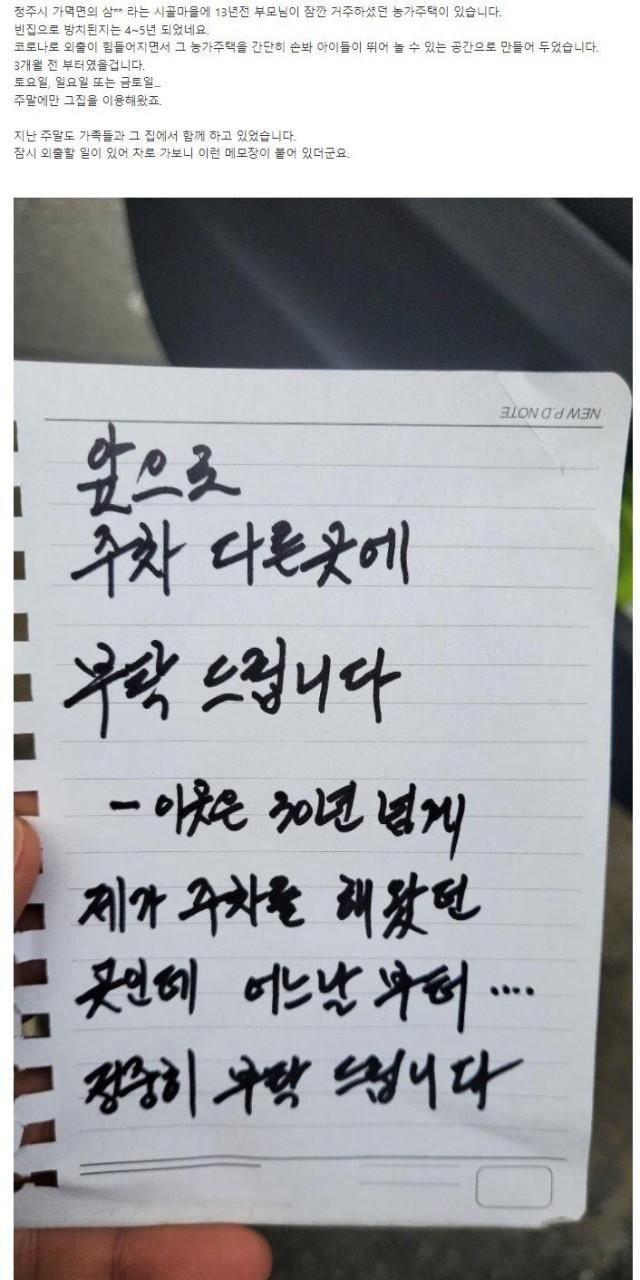 청주시 가덕면의 삼** 라는 시골마을에 13년전 부모님이 잠깐 거주하셨던 농가주택이 있습니다.
빈집으로 방치된지는 4~5년 되었네요.
코로나로 외출이 힘들어지면서 그 농가주택을 간단히 손봐 아이들이 뛰어 놀 수 있는 공간으로 만들어 두었습니다.
3개월 전 부터였을겁니다.
토요일, 일요일 또는 금토일...
주말에만 그집을 이용해왔죠.
지난 주말도 가족들과 그 집에서 함께 하고 있었습니다.
잠시 외출할 일이 있어 차로 가보니 이런 메모장이 붙어 있더군요.
NEW P.D NOTE
앞으로
주차 다른곳에
부탁 드립니다
- 이곳은 30년 넘게
제가 주차를 해 왔던
곳인데 어느날 부터 ....
정중히 부탁 드립니다